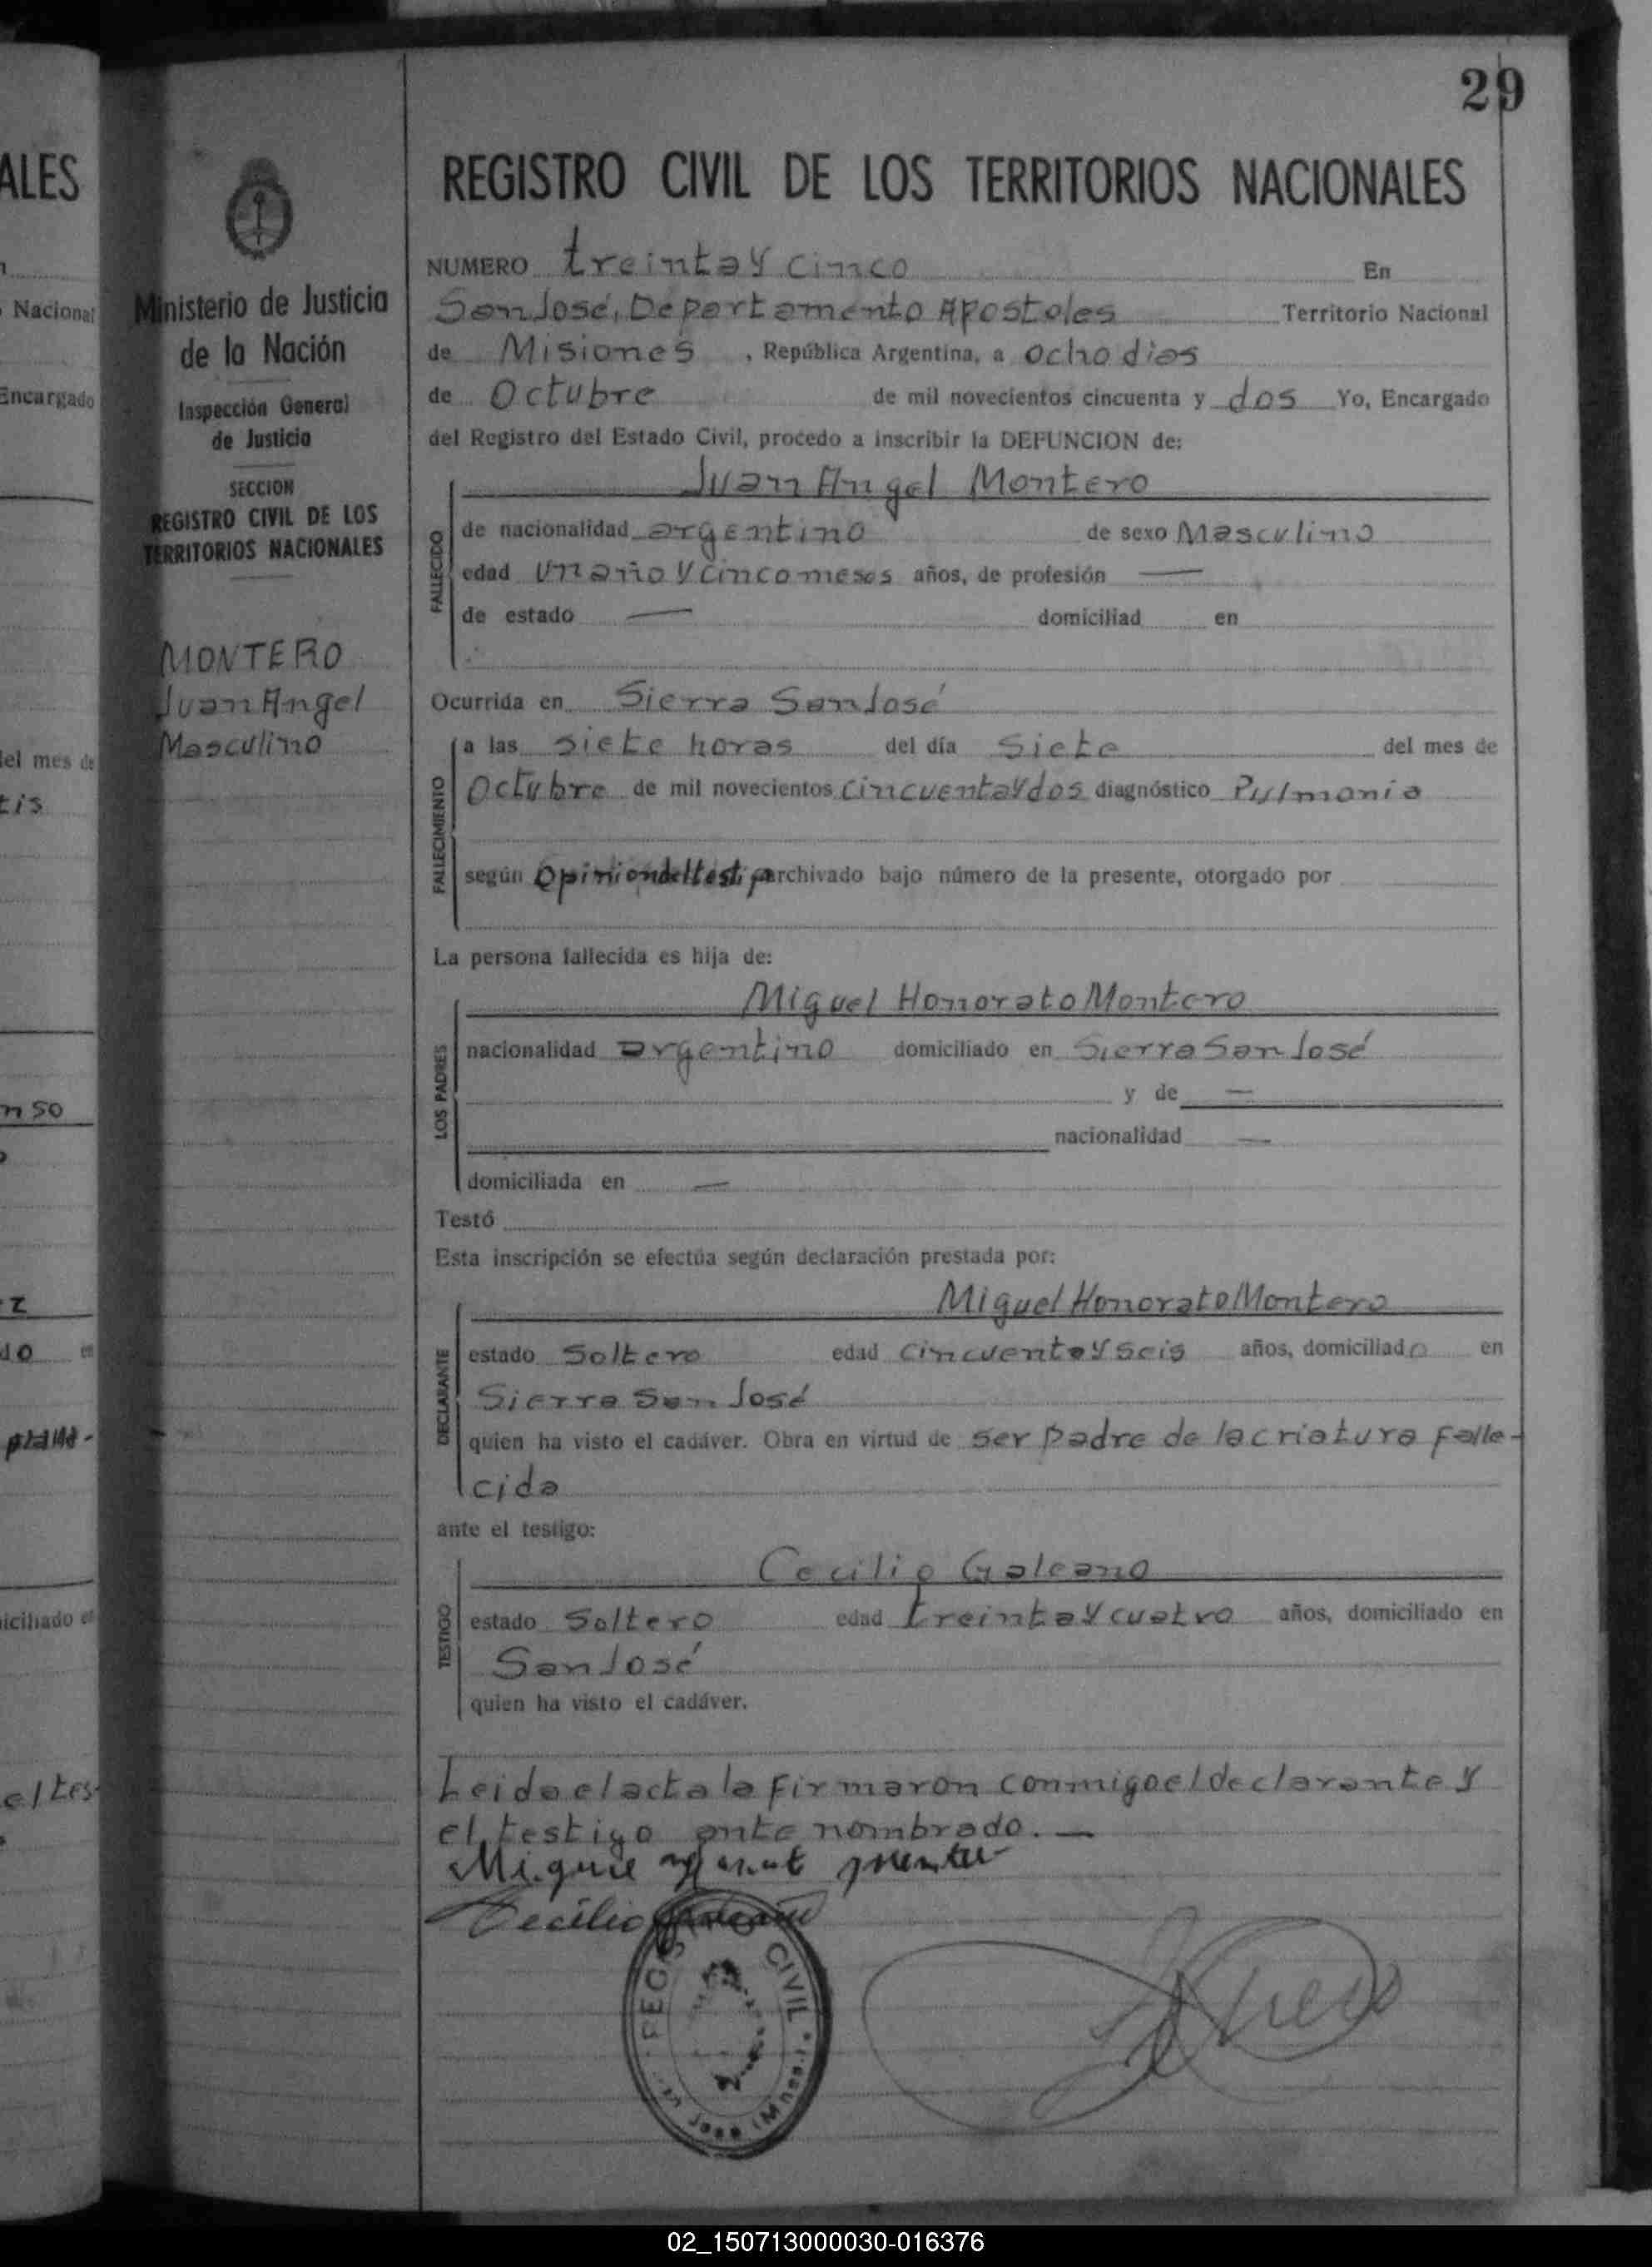 29
ALES
REGISTRO CIVIL DE LOS TERRITORIOS NACIONALES
Nacional
Encargado
del mes de
tis
n 50
z
do en
iciliado en
el tes-
Ministerio de Justicia
de la Nación
Inspección General
de Justicia
SECCION
REGISTRO CIVIL DE LOS
TERRITORIOS NACIONALES
MONTERO
Juan Angel
Masculino
NUMERO treinta y cinco En
San José, Departamento Apostoles Territorio Nacional
de Misiones , República Argentina, a ocho dias
de Octubre de mil novecientos cincuenta y dos Yo, Encargado
del Registro del Estado Civil, procedo a inscribir la DEFUNCION de:
Juan Angel Montero
FALLECIDO
de nacionalidad argentino de sexo Masculino
edad un año y cinco meses años, de profesión —
de estado — domiciliad en
Ocurrida en Sierra San José
FALLECIMIENTO
a las siete horas del día siete del mes de
Octubre de mil novecientos cincuenta y dos diagnóstico Pulmonia
según Opinion del testigo archivado bajo número de la presente, otorgado por
La persona fallecida es hija de:
LOS PADRES
Miguel Honorato Montero
nacionalidad argentino domiciliado en Sierra San José
y de —
nacionalidad —
domiciliada en —
Testó
Esta inscripción se efectúa según declaración prestada por:
DECLARANTE
Miguel Honorato Montero
estado Soltero edad cincuenta y seis años, domiciliado en
Sierra San José
quien ha visto el cadáver. Obra en virtud de ser padre de la criatura falle-
cida
ante el testigo:
TESTIGO
Cecilio Galeano
estado Soltero edad treinta y cuatro años, domiciliado en
San José
quien ha visto el cadáver.
Leida el acta la firmaron conmigo el declarante y
el testigo ante nombrado. —
Cecilio Galeano
REGISTRO CIVIL
San José (Mnes.)
02_150713000030-016376